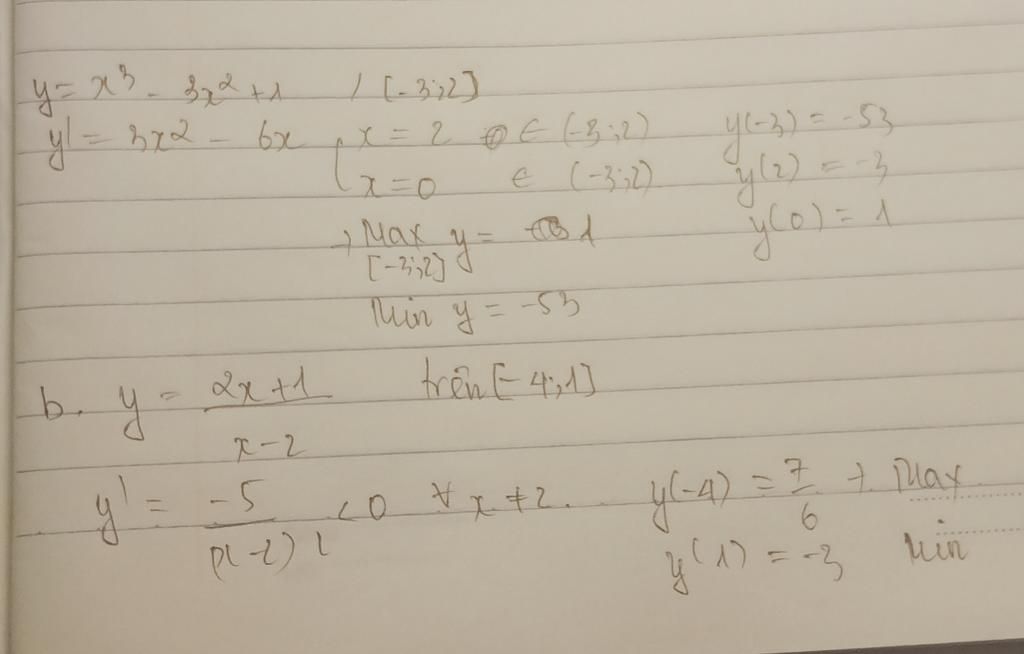 y = x³ - 3x² + 1 / [-3;2]
y' = 3x² - 6x [ x = 2 ∈ (-3;2) y(-3) = -53
x = 0 ∈ (-3;2) y(2) = -3
y(0) = 1
→ Max y = 1
[-3;2]
Min y = -53
b. y = (2x+1)/(x-2) trên [-4;1]
y' = -5/(x-2)² < 0 ∀ x ≠ 2. y(-4) = 7/6 → Max
y(1) = -3 Min